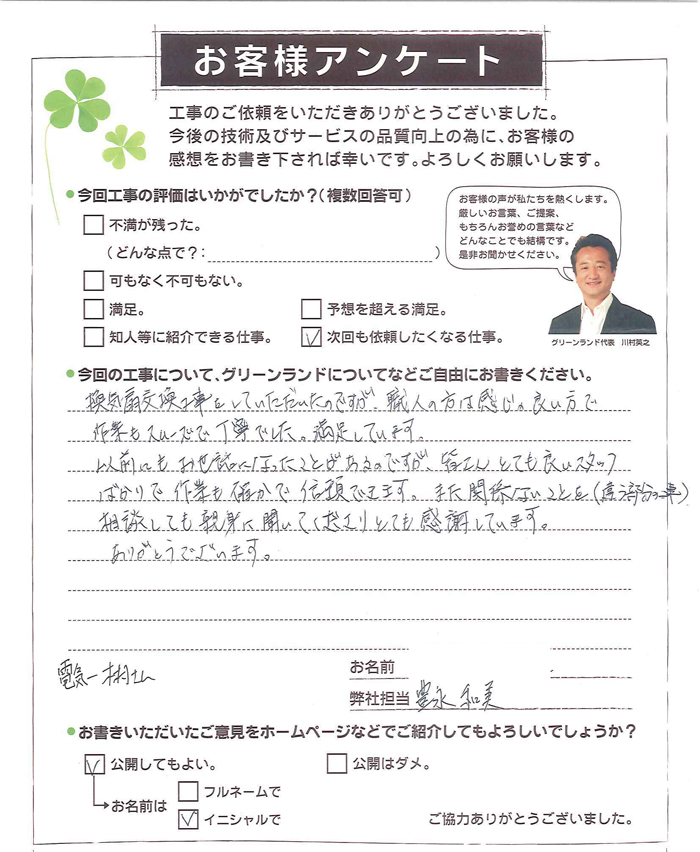 お客様アンケート
工事のご依頼をいただきありがとうございました。
今後の技術及びサービスの品質向上の為に、お客様の
感想をお書き下されば幸いです。よろしくお願いします。
今回工事の評価はいかがでしたか?(複数回答可)
不満が残った。
(どんな点で?: )
可もなく不可もない。
満足。
予想を超える満足。
知人等に紹介できる仕事。
次回も依頼したくなる仕事。
お客様の声が私たちを熱くします。
厳しいお言葉、ご提案、
もちろんお誉めの言葉など
どんなことでも結構です。
是非お聞かせください。
グリーンランド代表 川村英之
今回の工事について、グリーンランドについてなどご自由にお書きください。
換気扇交換工事をしていただいたのですが、職人の方は感じの良い方で
作業もスムーズで丁寧でした。満足しています。
以前にもお世話になったことがあるのですが、皆さんとても良いスタッフ
ばかりで作業も確かで信頼できます。また関係ないことを(違う部分の工事)
相談しても親身に聞いてくださりとても感謝しています。
ありがとうございます。
お名前
弊社担当 豊永 和美
お書きいただいたご意見をホームページなどでご紹介してもよろしいでしょうか?
公開してもよい。
公開はダメ。
お名前は
フルネームで
イニシャルで
ご協力ありがとうございました。